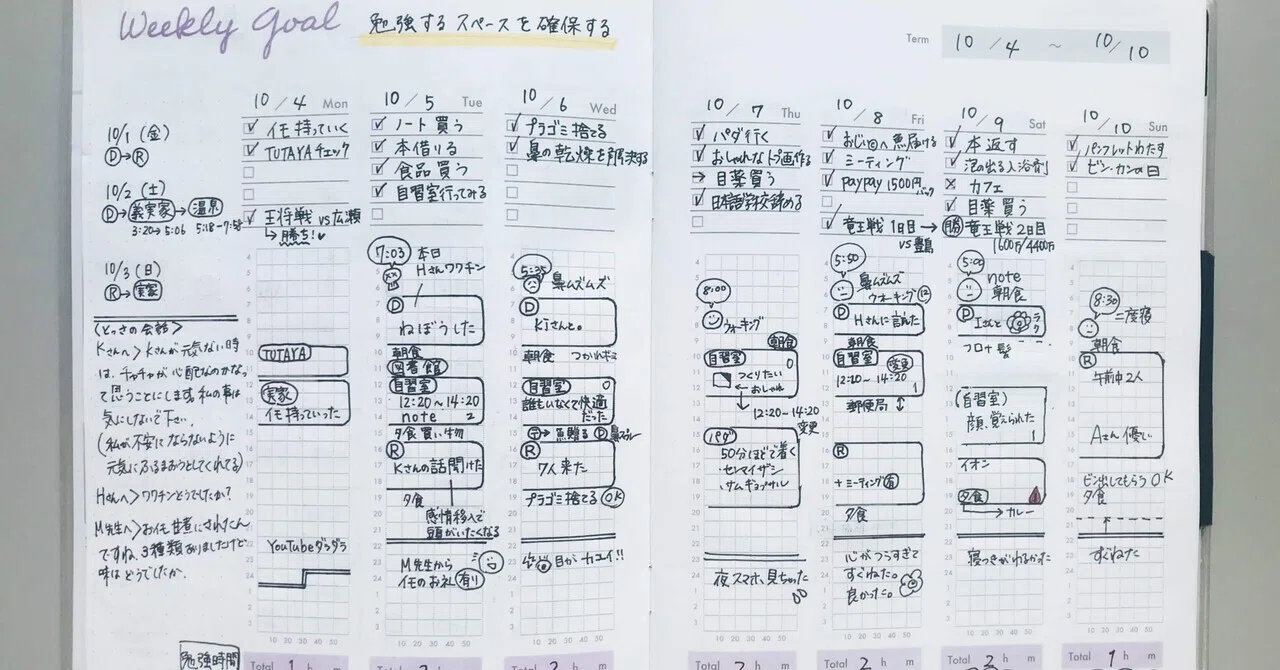 Weekly Goal 勉強するスペースを確保する
Term 10/4 ～ 10/10
10/1 (金)
D→R
10/2 (土)
D→義実家→温泉
3:20→5:06 5:18-7:58
10/3 (日)
R→実家
〈とっさの会話〉
Kさんへ>Kさんが元気ない時
は、チャチャが心配なのかなっ
て思うことにします。私の事は
気にしないで下さい。
(私が不安にならないように
元気にふるまおうとしてくれてる)
Hさんへ>ワクチンどうでしたか?
M先生へ>お イモ 甘煮にされたん
ですね、3種類ありましたけど
味はどうでしたか。
勉強時間
10/4 Mon
イモ持っていく
TUTAYAチェック
王将戦 vs広瀬
↳勝ち!
TUTAYA
実家
イモ持っていった
YouTubeダラダラ
10 20 30 40 50
Total 1 h m
10/5 Tue
ノート買う
本借りる
食品買う
自習室行ってみる
7:03 本日
Hさんワクチン
D
ねぼうした
朝食
図書館
自習室
12:20〜14:20
note 2
夕食買い物
R
Kさんの話聞けた
夕食
感情移入で
頭がいたくなる
M先生から
イモのお礼 有り
10 20 30 40 50
Total h m
10/6 Wed
プラゴミ捨てる
鼻の乾燥を解決する
5:35
鼻ムズムズ
D
Kiさんと。
朝食 つかれギミ
自習室 0
誰もいなくて快適
だった
R
7人来た
プラゴミ捨てる OK
目がカユイ!!
10 20 30 40 50
Total 2 h m
10/7 Thu
パダ行く
→ 目薬買う
8:00
ウォーキング
朝食
自習室 0
つくりたい
←おしゃれ
12:20〜14:20
変更
パダ
50分ほどで着く
・センマイザシ
・サムギョプサル
夜スマホ、見ちゃった
10 20 30 40 50
Total h m
10/8 Fri
ミーティング
paypay 1500円
竜王戦 1日目→
vs豊島
5:50
鼻ムズムズ
ウォーキング
D
Hさんに言れた
朝食
自習室 変更
12:20〜14:20
1
郵便局
R
+ミーティング 有
夕食
心がつらすぎて
すぐねた。
良かった。
10 20 30 40 50
Total 2 h m
10/9 Sat
本返す
泡の出る入浴剤
× カフェ
目薬買う
勝 竜王戦2日目
1600万/4400万
5:00
note
朝食
D
Iさんと
フロ+髪
(自習室)
顔、覚えられた
1
イオン
夕食
→カレー
寝つきがわるかった
10 20 30 40 50
Total h m
10/10 Sun
パンフレットわたす
ビン・カンの日
8:30
二度寝
朝食
R
午前中2人
Aさん優しい
ビン出してもらうOK
夕食
すぐねた
10 20 30 40 50
Total 1 h m